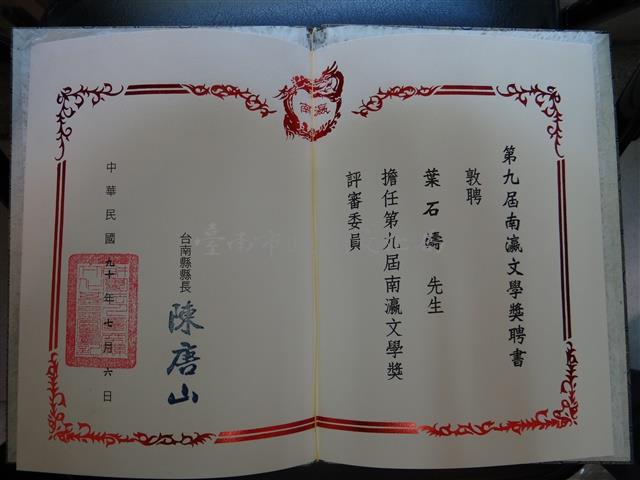 第九屆南瀛文學獎聘書
敦聘
葉石濤 先生
擔任第九屆南瀛文學獎
評審委員
台南縣縣長
陳唐山
中華民國九十年七月六日
南瀛